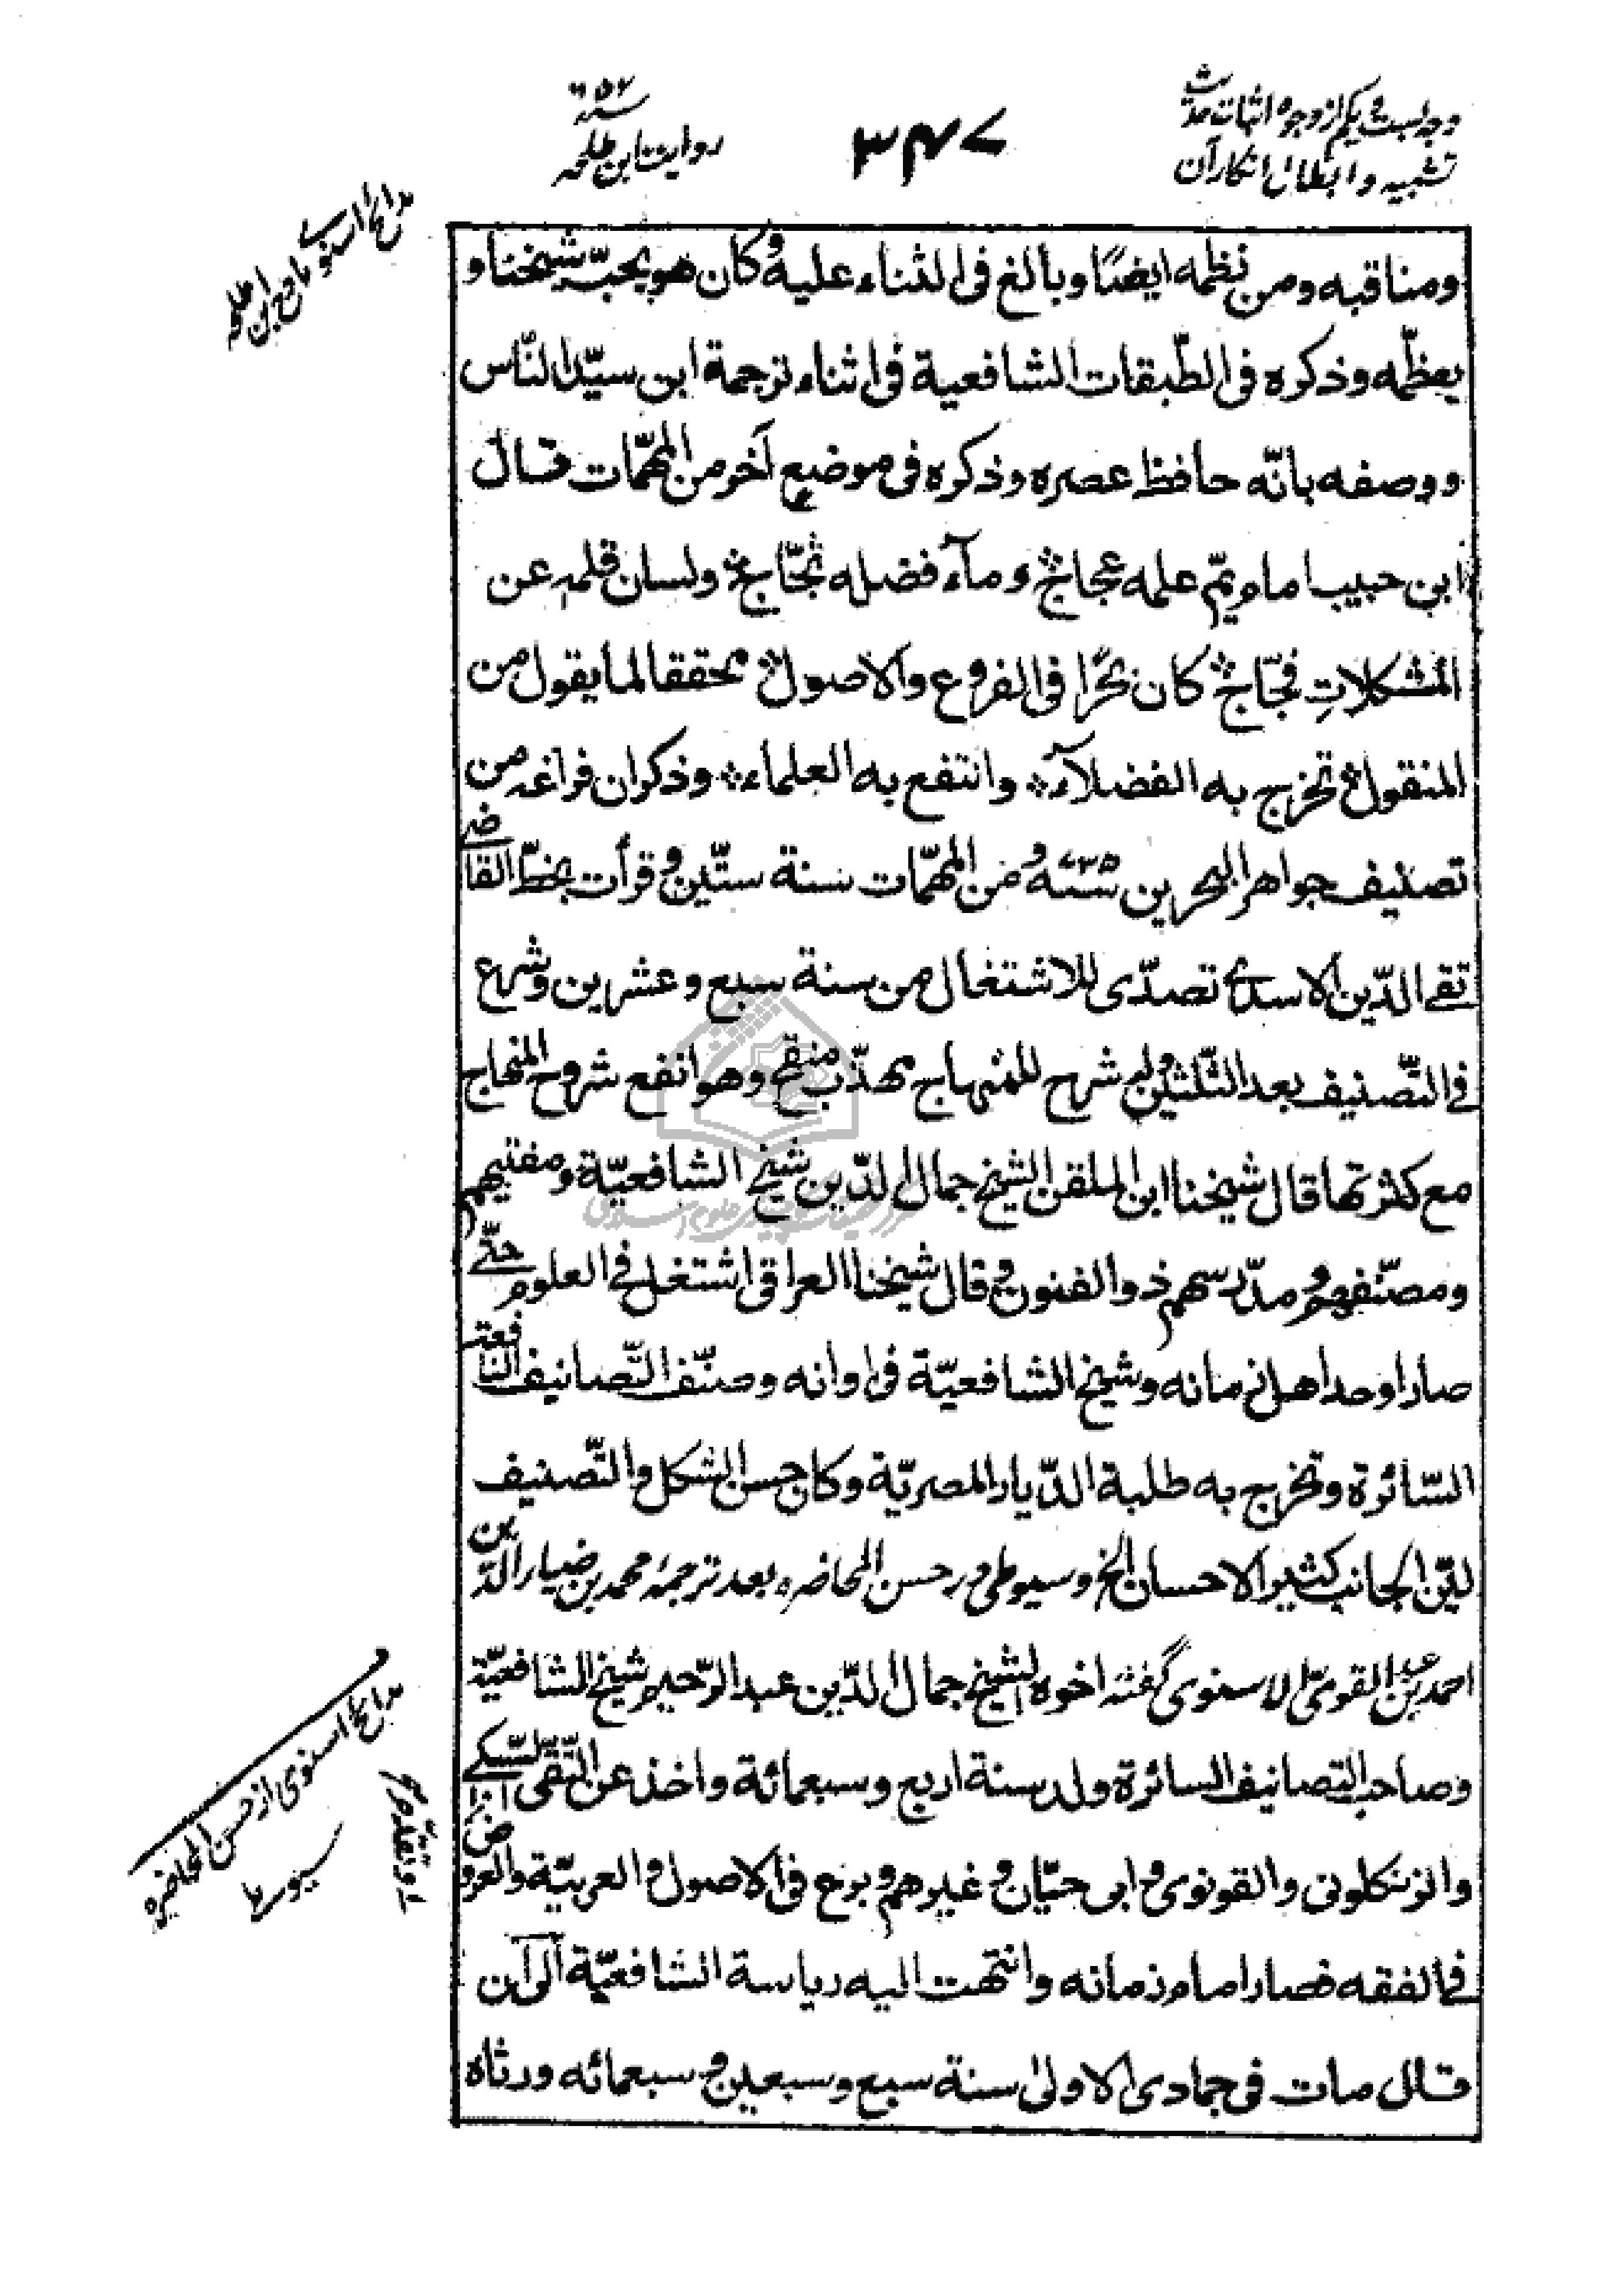 وجه بست و یکم از وجوه اثبات حدیث
تشبیه و ابطال انکار آن
۳۴۷
سنة ۶۵۲
روایت ابن طلحه
ومناقبه ومن نظمه ايضًا وبالغ فى الثناء عليه وكان هو يحبّ شيخنا و
يعظّمه وذكره فى الطّبقات الشافعية فى اثناء ترجمة ابن سيّد النّاس
ووصفه بانّه حافظ عصره وذكره فى موضع آخر من المهمّات قال
ابن حبيب امام يمّ علمه عجاج وماء فضله ثجّاج ولسان قلمه عن
المشكلاتِ فجّاج كان بحرًا فى الفروع والاصول محققا لما يقول من
المنقول تخرج به الفضلاء وانتفع به العلماء وذكر ان فراغه من
تصنيف جواهر البحرين سنة ٧٣٥ ومن المهمّات سنة ستّين وقرأت بخطّ القاضى
تقى الدّين الاسدى تصدّى للاشتغال من سنة سبع وعشرين وشرع
فى التّصنيف بعد الثّلثين وله شرح للمنهاج مهذّب منقح وهو انفع شروح المنهاج
مع كثرتها قال شيخنا ابن الملقن الشيخ جمال الدّين شيخ الشافعيّة ومفتيهم
ومصنّفهم ومدّرسهم ذو الفنون وقال شيخنا العراقى اشتغل فى العلوم حتّى
صار اوحد اهل زمانه وشيخ الشافعيّة فى اوانه وصنّف التّصانيف النافعة
السّائرة وتخرج به طلبة الدّيار المصريّة وكان حسن الشكل والتّصنيف
ليّن الجانب كثير الاحسان الخ و سیوطی در حسن المحاضره بعد ترجمۀ محمد بن ضیاء الدّین
احمد بن عبد القوىّ الاسنوى گفته اخوه الشيخ جمال الدّين عبد الرّحيم شيخ الشافعيّة
وصاحب التصانيف السائرة ولد سنة اربع وسبعمائة واخذ عن التّقى السّبكى
والزنكلونى والقونوى وابى حيّان وغيرهم وبرع فى الاصول والعربيّة والعروض
فى الفقه فصار امام زمانه وانتهت اليه رياسة الشافعيّة الى ان
قال مات فى جمادى الاولى سنة سبع وسبعين وسبعمائه ورثاه
مدایح اسنوی از حسن المحاضره